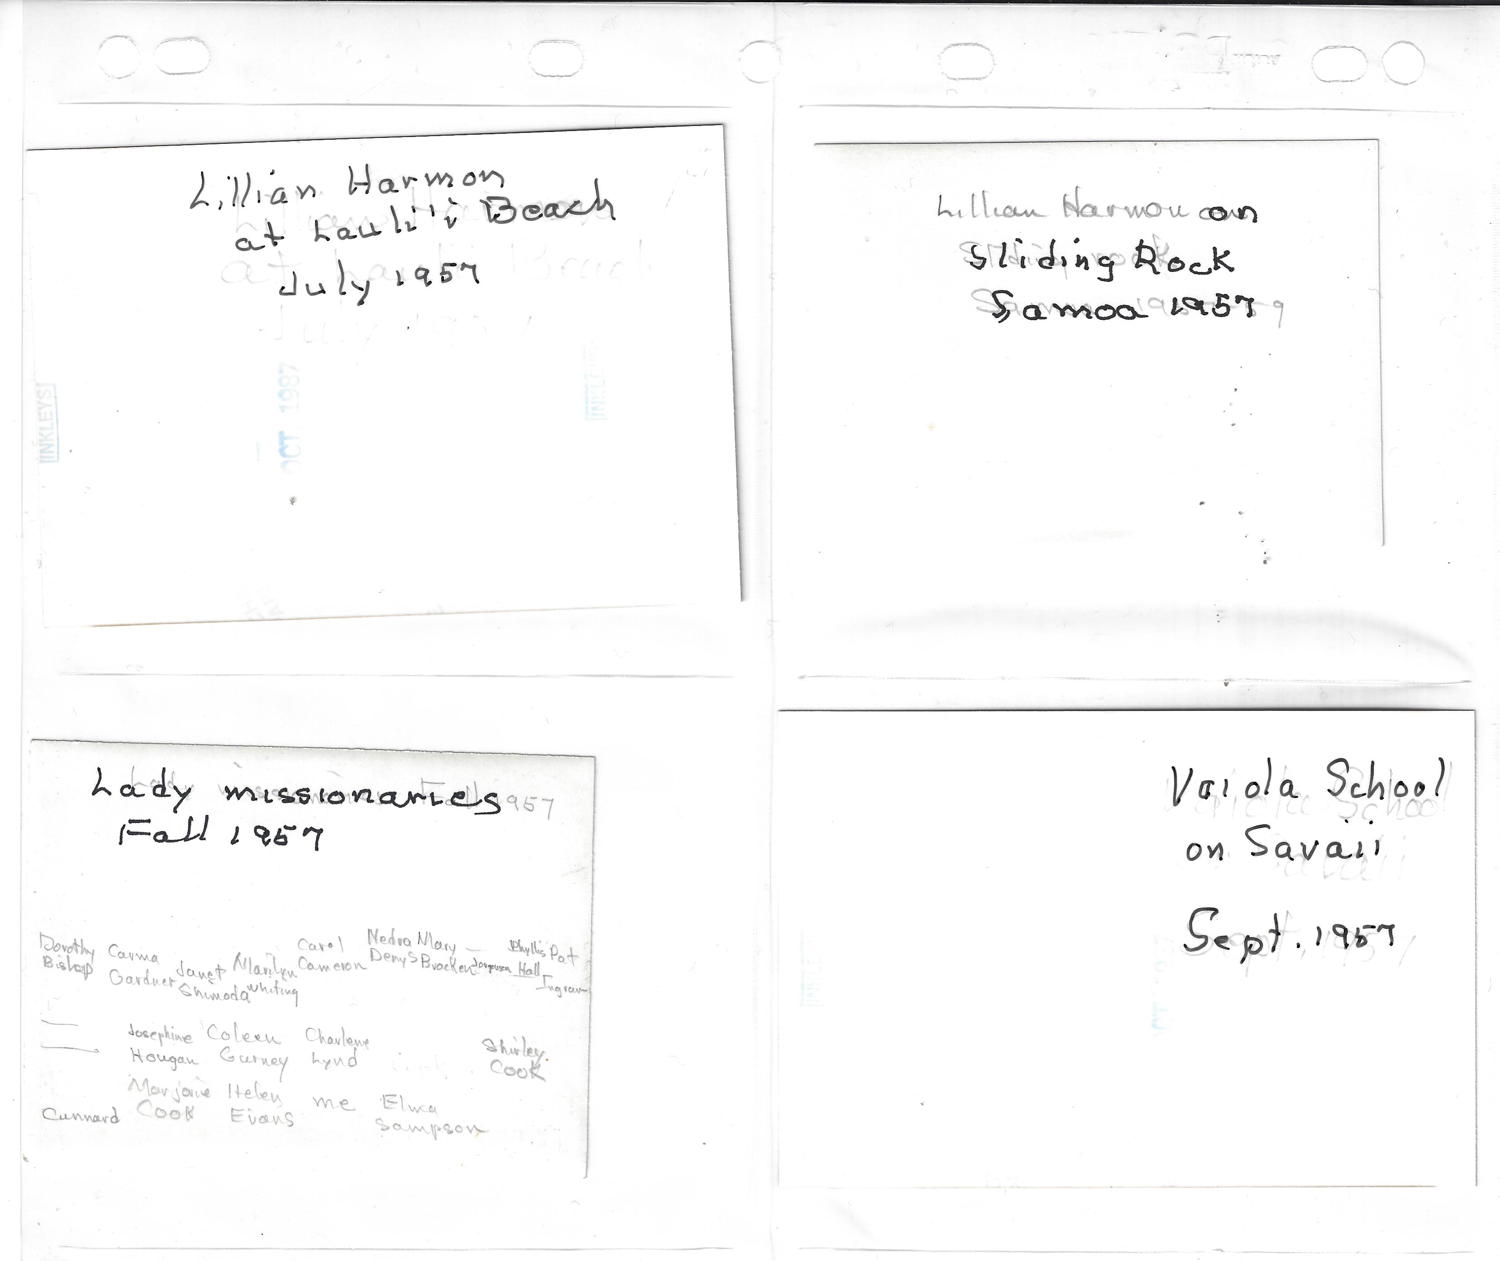 Lillian Harmon
at Lauli'i Beach
July 1957
INKLEYS
OCT. 1987
Lillian Harmon on
Sliding Rock
Samoa 1957
Lady missionaries
Fall 1957
Dorothy Carma Janet Marilyn Carol Nedra Mary — Phyllis Pat
Bishop Gardner Shimoda Whiting Cameron Denys Bracken Jorgensen Hall Ingram
Josephine Coleen Charlene Shirley
Hougan Gurney Lynd Cook
Marjorie Helen me Elma
Cunnard Cook Evans Sampson
Vaiola School
on Savaii
Sept. 1957